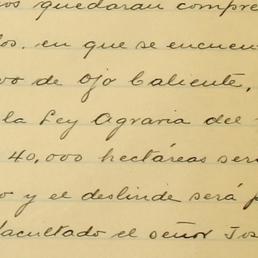 quedaran compre
los, en que se encuen
de Ojo Caliente,
la Ley Agraria del
40,000 hectáreas ser
o y el deslinde será
facultado el señor Jos